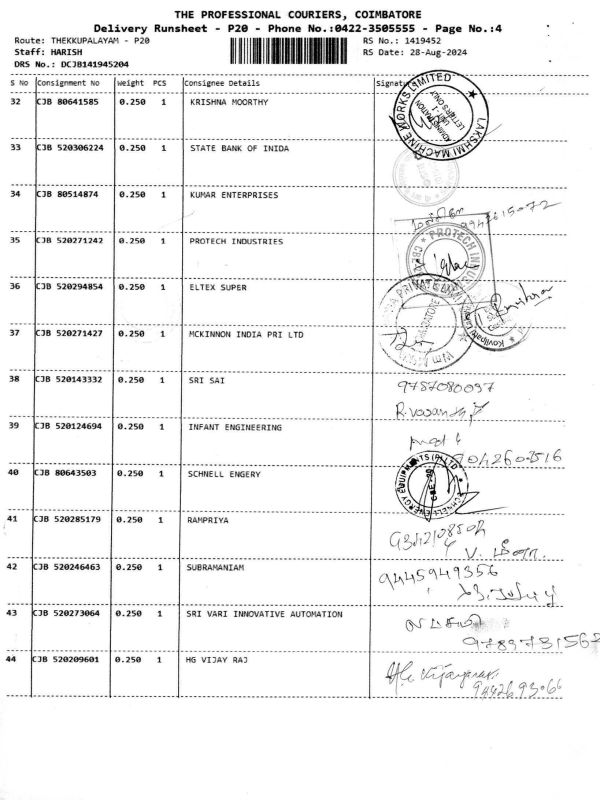 THE PROFESSIONAL COURIERS, COIMBATORE
Delivery Runsheet - P20 - Phone No.:0422-3505555 - Page No.:4
Route: THEKKUPALAYAM - P20 RS No.: 1419452
Staff: HARISH RS Date: 28-Aug-2024
DRS No.: DCJB141945204
S No Consignment No Weight PCS Consignee Details Signature
32 CJB 80641585 0.250 1 KRISHNA MOORTHY
LAKSHMI MACHINE WORKS LIMITED
ADMINISTRATION
UNIT-1
LETTERS ONLY
33 CJB 520306224 0.250 1 STATE BANK OF INIDA
34 CJB 80514874 0.250 1 KUMAR ENTERPRISES
35 CJB 520271242 0.250 1 PROTECH INDUSTRIES
PROTECH
36 CJB 520294854 0.250 1 ELTEX SUPER
37 CJB 520271427 0.250 1 MCKINNON INDIA PRI LTD
38 CJB 520143332 0.250 1 SRI SAI 9787080097
39 CJB 520124694 0.250 1 INFANT ENGINEERING
40 CJB 80643503 0.250 1 SCHNELL ENGERY
SCHNELL ENERGY EQUIPMENTS (P) LTD
41 CJB 520285179 0.250 1 RAMPRIYA
42 CJB 520246463 0.250 1 SUBRAMANIAM 9445949356
43 CJB 520273064 0.250 1 SRI VARI INNOVATIVE AUTOMATION
9789731567
44 CJB 520209601 0.250 1 HG VIJAY RAJ